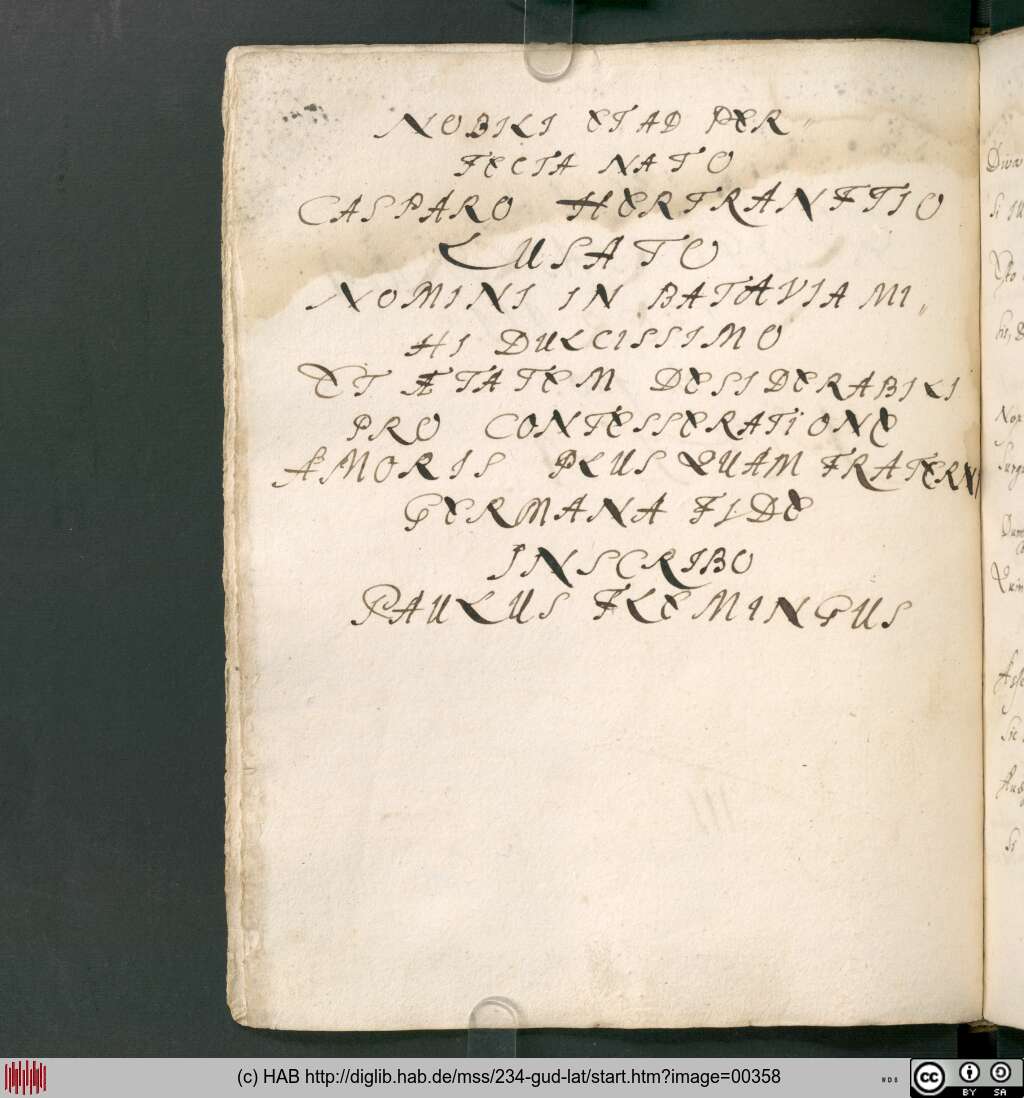 NOBILI ET AD PER„
FECTA NATO
CASPARO HERTRANFTIO
LUSATO
NOMINI IN BATAVIA MI„
HI DULCISSIMO
ET ÆTATEM DESIDERABILI
PRO CONTESSERATIONE
AMORIS PLUS QUAM FRATERNI
GERMANA FIDE
INSCRIBO
PAULUS FLEMINGUS
Nor
(c) HAB http://diglib.hab.de/mss/234-gud-lat/start.htm?image=00358
cc BY SA